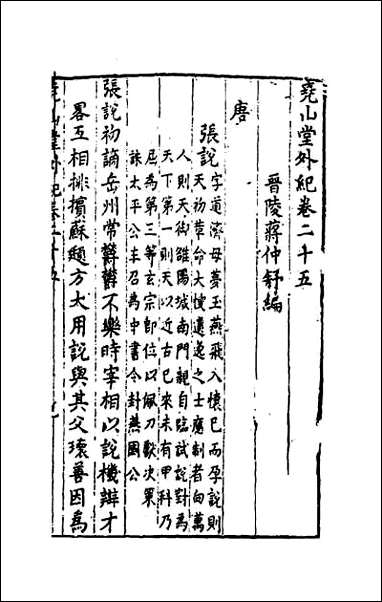 堯山堂外紀卷二十五
晉陵蔣仲舒編
唐
張說字道濟母夢玉燕飛入懷已而孕說則
天初革命大搜遺逸之士應制者向萬
人則天御雒陽城南門親自臨試說對為
天下第一則天以近古已來未有甲科乃
屈為第三等玄宗即位以佩刀獻決策
誅太平公主召為中書令封燕國公
張說初謫岳州常鬱鬱不樂時宰相以說機辯才
畧互相排擯蘇頲方大用說與其父瓌善因為